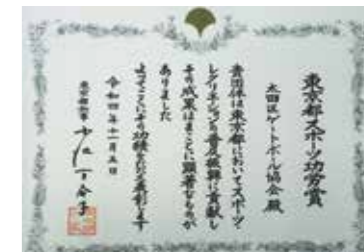 東京都スポーツ功労賞
大田区ゲートボール協会 殿
貴団体は東京都においてスポーツ・
レクリエーションの普及振興に貢献し
その成果はまことに顕著なものが
ありました
よってここにその功績をたたえ表彰します
令和四年十一月五日
東京都知事 小池百合子